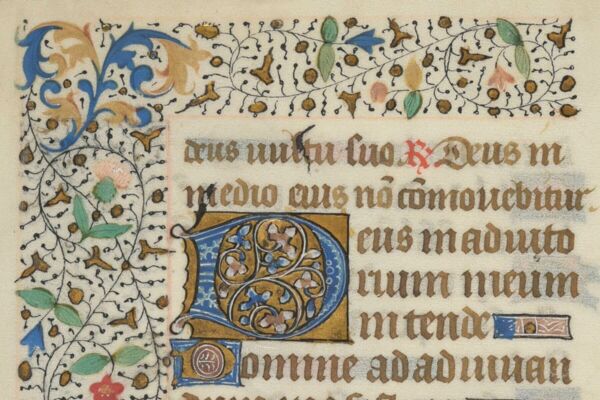 deus vultu suo. R Deus in
medio eius nō cōmovebitur.
Deus in adiuto
rium meum
intende
Domine ad adiuvan